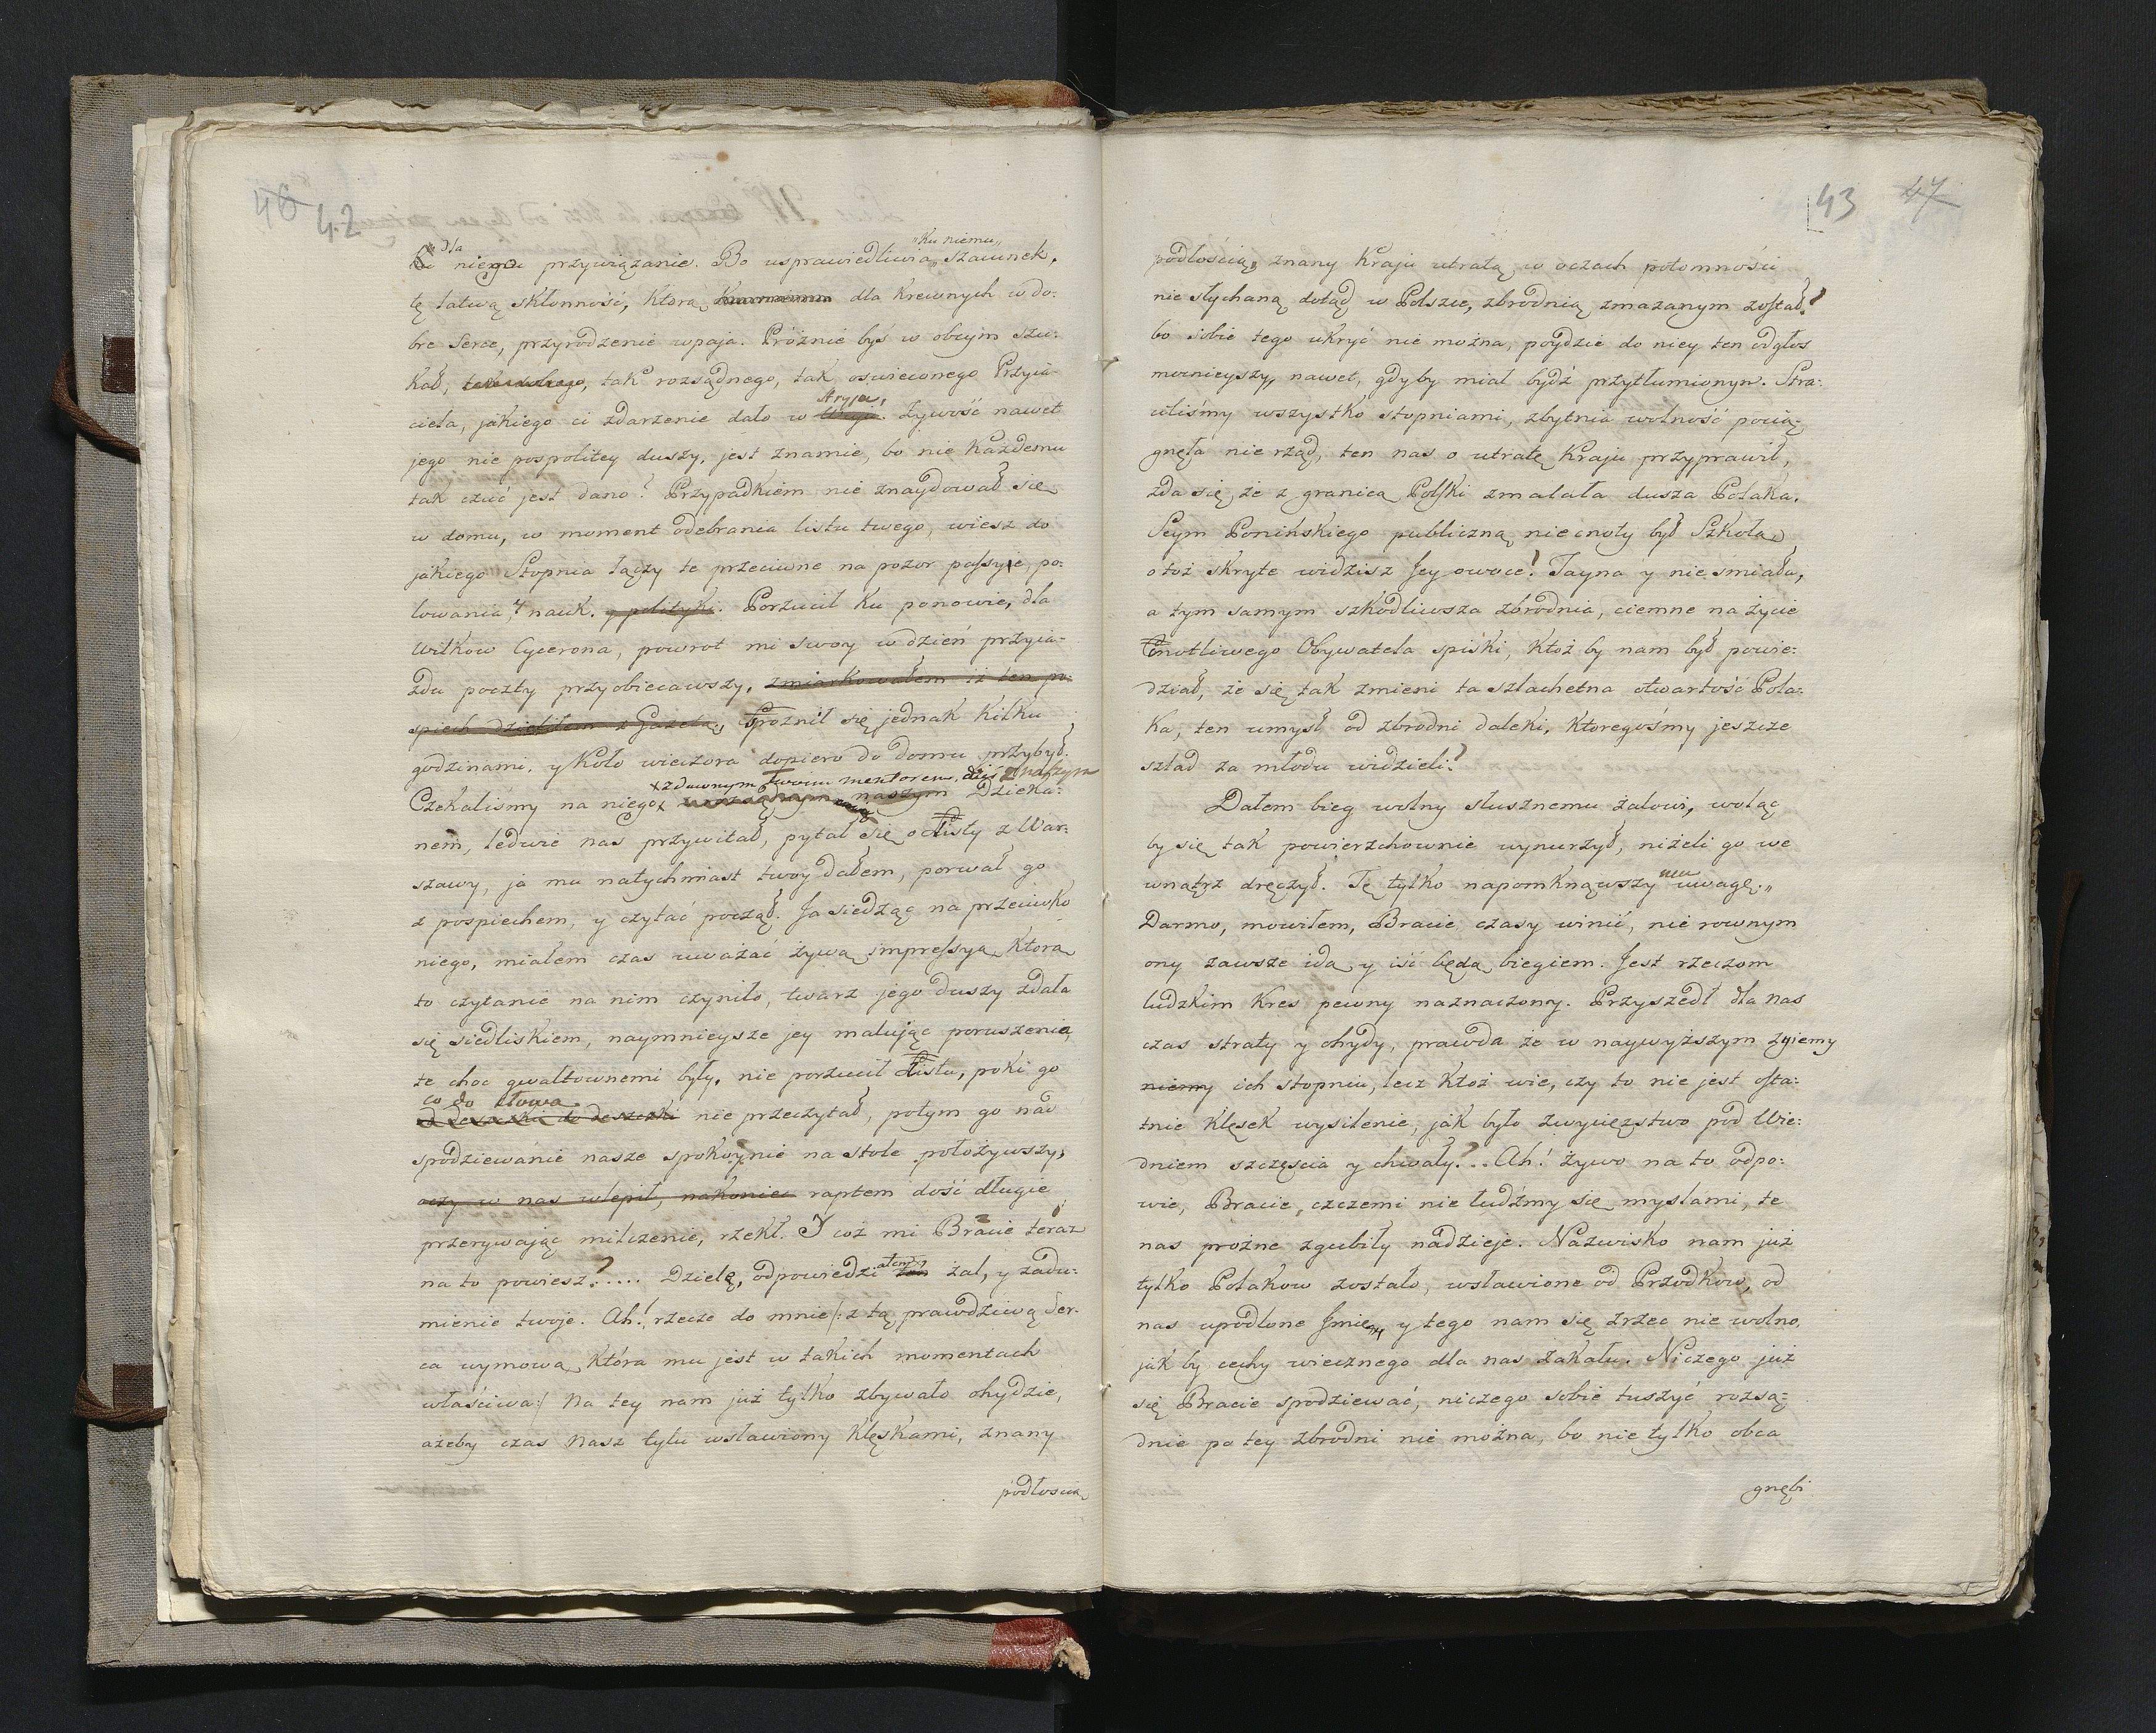 46 42
dla „Ku niemu„
niego przywiązanie. Bo usprawiedliwia„ szacunek,
tę łatwą skłonność, ktorą dla krewnych w do:
bre Serce, przyrodzenie wpaja. Próżnie byś w obcym szu:
kał, tak dobrego, tak rozsądnego, tak oswieconego Przyia-
stryju,
ciela, jakiego ci zdarzenie dało w Wuju. Żywość nawet
jego nie pospolitey duszy, jest znamie, bo nie każdemu
tak czuć jest dano! Przypadkiem nie znaydował się
w domu, w moment odebrania listu twego, wiesz do
jakiego Stopnia łączy te przeciwne na pozor passyie, po:
lowania, y nauk. y polityki. Porzucił ku ponowie, dla
wilkow Cycerona, powrot mi swoy w dzień przyia-
zdu poczty przyobiecawszy, zmiarkowałem iż ten po:
spiech dzieliłem z Gazetą, Spoznił się jednak kilku
godzinami, y koło wieczora dopiero do domu przybył.
x z dawnym twoim mentorem, dziś z naszym
Czekaliśmy na niego x naszym Dzieka:
nem, ledwie nas przywitał, pytał się o Listy z War:
szawy, ja mu natychmiast twoy dałem, porwał go
z pospiechem, y czytać począł. Ja siedząc na przeciwko
niego, miałem czas uważać żywą impressyą, ktorą
to czytanie na nim czyniło, twarz jego duszy zdała
się siedliskiem, naymnieysze jey malując poruszenia,
te choc gwałtownemi były, nie porzucił Listu, poki go
co do słowa
od deszczki do deszczki nie przeczytał, potym go nad
spodziewanie nasze spokoynie na stole położywszy,
oczy w nas wlepił, nakoniec raptem dość długie
przerywając milczenie, rzekł. I coż mi Bracie teraz
na to powiesz?.... Dzielę, odpowiedziałem, żal, y zadu:
mienie twoje. Ah! rzecze do mnie /: z tą prawdziwą Ser-
ca wymową, która mu jest w takich momentach
właściwa :/ Na tey nam już tylko zbywało ohydzie,
ażeby czas nasz tylu wsławiony klęskami, znany
podłoscią
43 47
podłością, znany Kraju utratą, w oczach potomności
nie słychaną dotąd w Polszcze, zbrodnią zmazanym został!
bo sobie tego ukryć nie można, poydzie do niey ten odgłos
mocnieyszy, nawet, gdyby miał bydź przytłumionym. Stra:
ciliśmy wszystko stopniami, zbytnia wolność pocią-
gnęła nie rząd, ten nas o utratę Kraju przyprawił,
zda się, że z granicą Polski zmalała dusza Polaka.
Seym Ponińskiego publiczną niecnoty był Szkołą,
otoż skryte widzisz Jey owoce! Tayna y nie smiała,
a tym samym szkodliwsza zbrodnia, ciemne na życie
Cnotliwego Obywatela spiski, ktoż by nam był powie:
dział, że się tak zmieni ta szlachetna otwartość Pola:
ka, ten umysł od zbrodni daleki, ktoregośmy jeszcze
sztad za młodu widzieli?
Dałem bieg wolny słusznemu żalowi, woląc
by się tak powierzchownie wynurzył, niżeli go we
wnątrz dręczył. Tę tylko napomknąwszy mu uwagę:„
Darmo, mowiłem, Bracie czasy winić, nie rownym
ony zawsze idą y iść będą biegiem. Jest rzeczom
ludzkim kres pewny naznaczony. Przyszedł dla nas
czas straty y ohydy, prawda że w naywyższym żyiemy
niemy ich stopniu, lecz ktoż wie, czy to nie jest osta:
tnie klęsek wysilenie, jak było zwycięzstwo pod Wie:
dniem szczęscia y chwały?.. Ah! żywo na to odpo:
wie, Bracie, czczemi nie łudźmy się myslami, te
nas prożne zgubiły nadzieje. Nazwisko nam już
tylko Polakow zostało, wsławione od Przodkow, od
nas upodlone Jmie, y tego nam się zrzec nie wolno,
jak by cechy wiecznego dla nas zakału. Niczego już
się Bracie spodziewać, niczego sobie tuszyć rozsą-
dnie po tey zbrodni nie można, bo nie tylko obca
gnębi